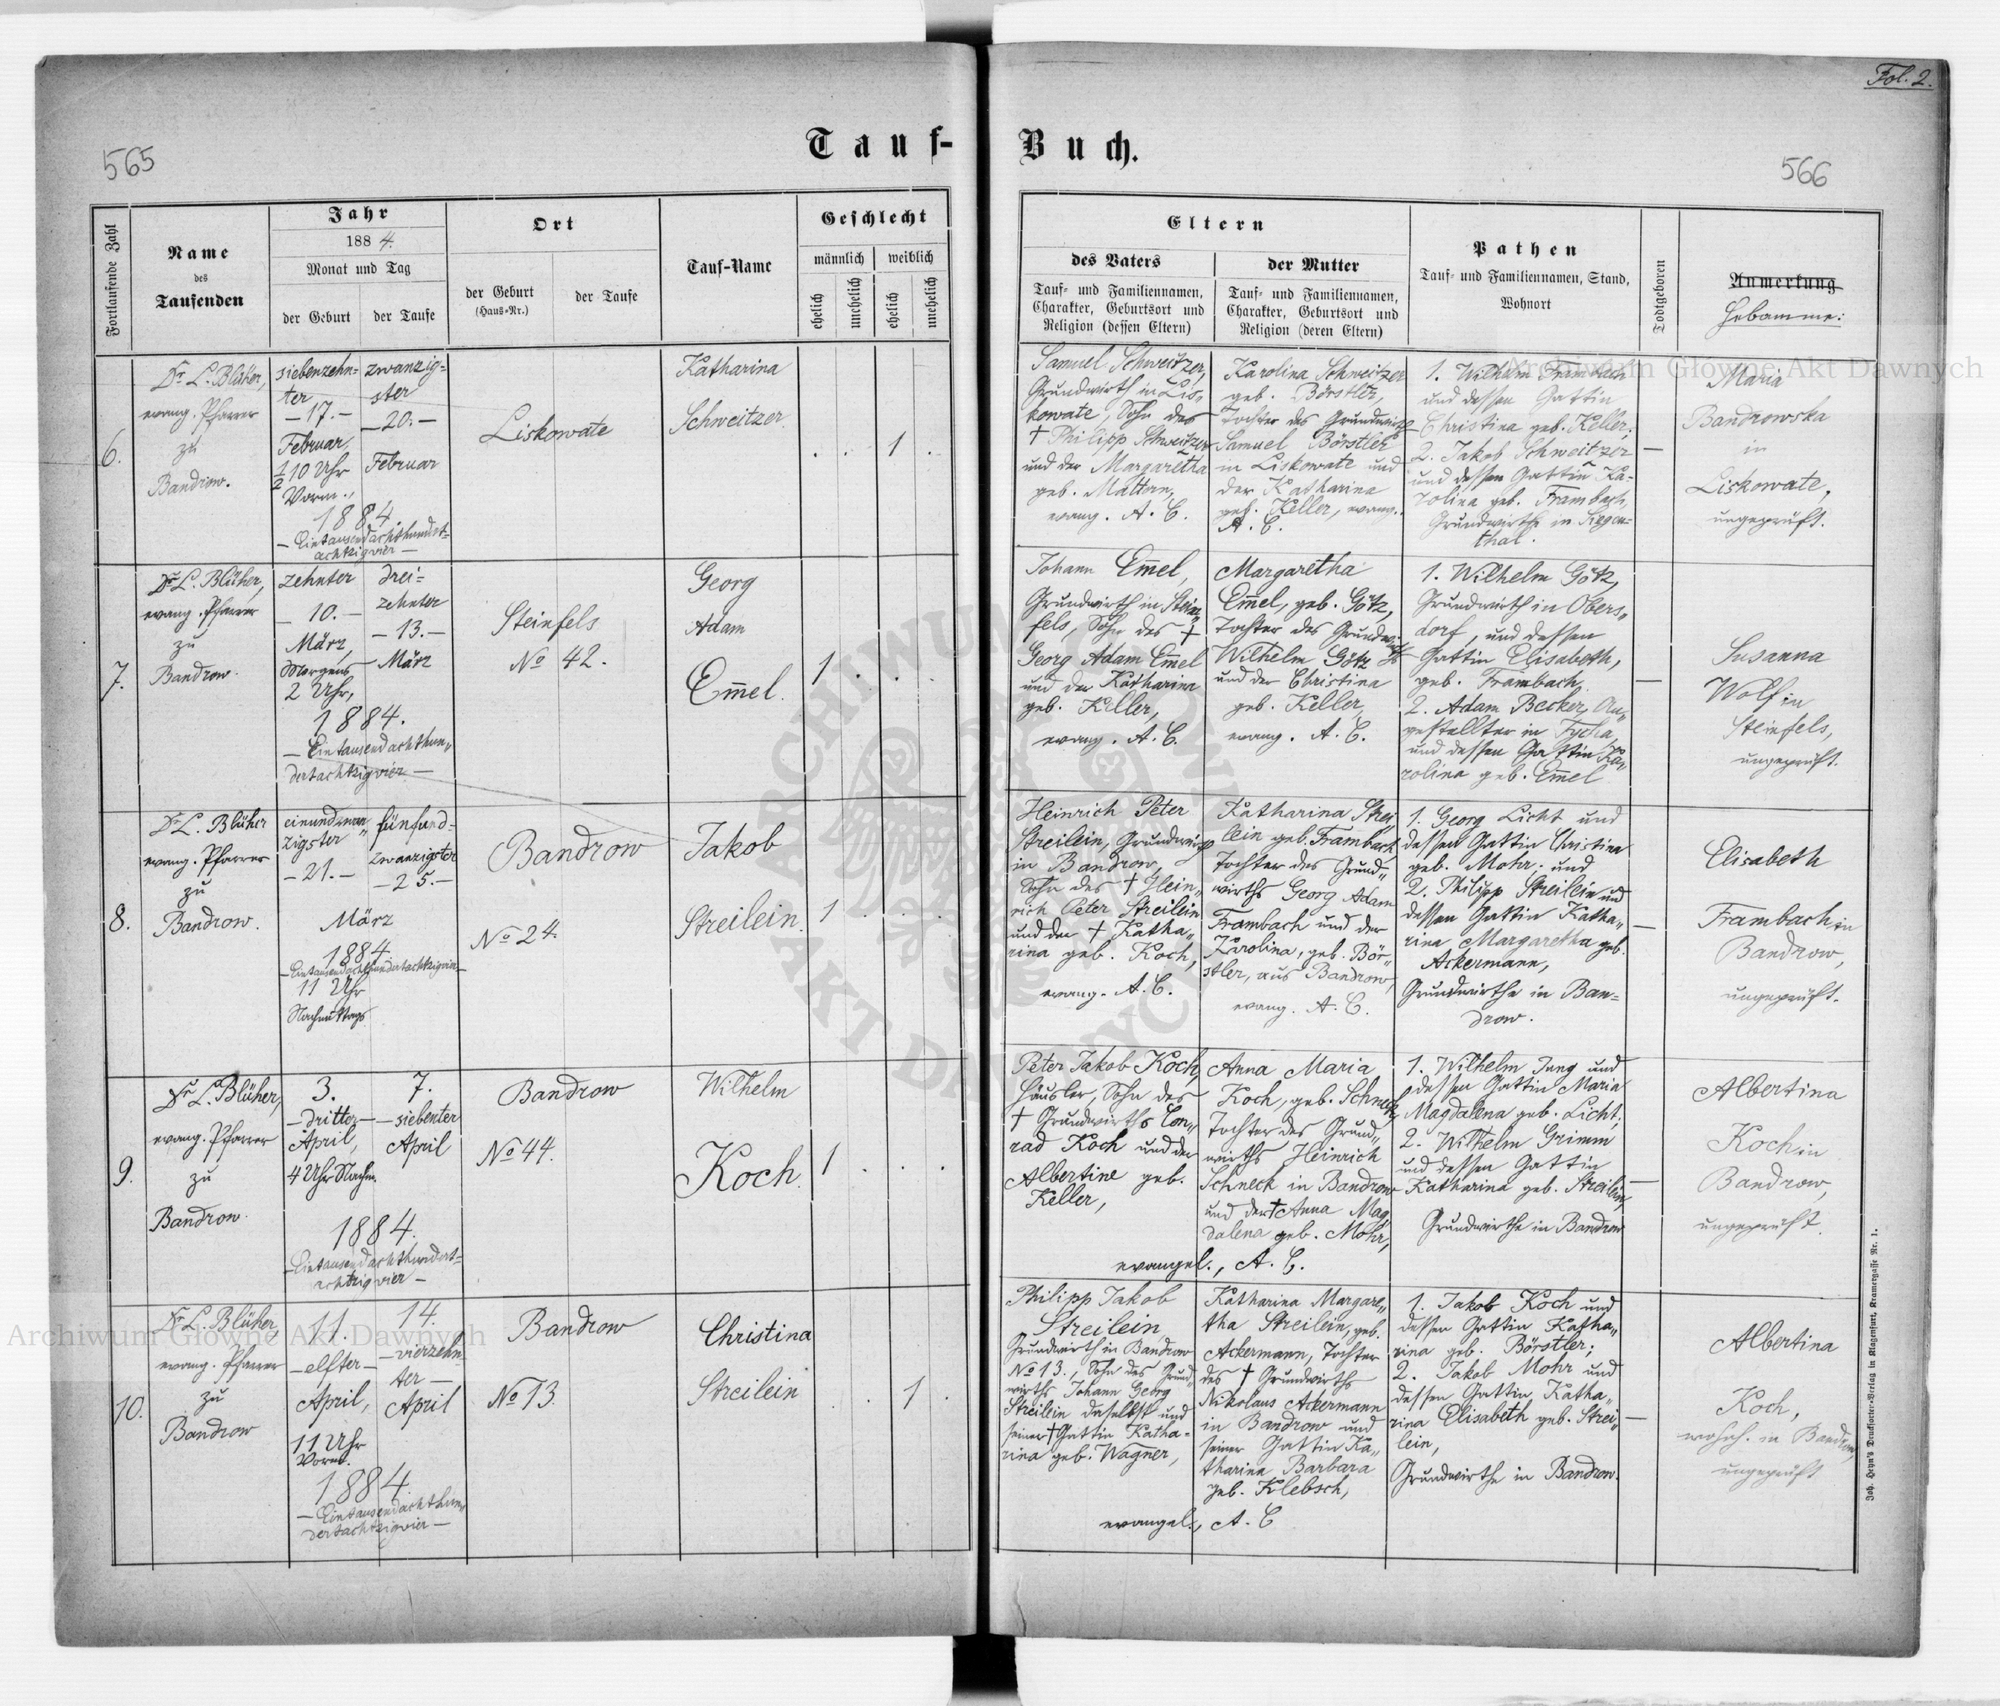 Fol. 2.
Tauf-Buch.
565
566
Fortlaufende Zahl
Name
des
Taufenden
Jahr
1884.
Monat und Tag
der Geburt
der Taufe
Ort
der Geburt
(Haus-Nr.)
der Taufe
Tauf-Name
Geschlecht
männlich
weiblich
ehelich
unehelich
ehelich
unehelich
Eltern
des Vaters
Tauf- und Familiennamen,
Charakter, Geburtsort und
Religion (dessen Eltern)
der Mutter
Tauf- und Familiennamen,
Charakter, Geburtsort und
Religion (deren Eltern)
Pathen
Tauf- und Familiennamen, Stand,
Wohnort
Todtgeboren
Anmerkung
Hebamme:
6.
Dr L. Blüher,
evang. Pfarrer
zu
Bandrow.
siebenzehn-
ter
—17.—
Februar,
½10 Uhr
Vorm.,
zwanzig-
ster
—20.—
Februar
1884
— Eintausendachthundert-
achtzigvier —
Liskowate
Katharina
Schweitzer
1
Samuel Schweitzer,
Grundwirth in Lis-
kowate, Sohn des
† Philipp Schweitzer
und der Margaretha
geb. Mattern,
evang. A. C.
Karolina Schweitzer
geb. Börstler,
Tochter des Grundwirth
Samuel Börstler
in Liskowate und
der Katharina
geb. Keller, evang.
A. C.
1. Wilhelm Frambach
und dessen Gattin
Christina geb. Keller;
2. Jakob Schweitzer
und dessen Gattin Ka-
rolina geb. Frambach,
Grundwirthe in Siegen-
thal.
—
Maria
Bandrowska
in
Liskowate,
ungeprüft.
7.
Dr L. Blüher,
evang. Pfarrer
zu
Bandrow.
zehnter
—10.—
März,
Morgens
2 Uhr,
drei-
zehnter
—13.—
März
1884.
— Eintausendachthun-
dertachtzigvier —
Steinfels
No 42.
Georg
Adam
Emel.
1
Johann Emel,
Grundwirth in Stein-
fels, Sohn des †
Georg Adam Emel
und der Katharina
geb. Keller,
evang. A. C.
Margaretha
Emel, geb. Götz,
Tochter des Grundwirths
Wilhelm Götz
und der Christina
geb. Keller,
evang. A. C.
1. Wilhelm Götz,
Grundwirth in Obers-
dorf, und dessen
Gattin Elisabeth,
geb. Frambach
2. Adam Becker, An-
gestellter in Tycha,
und dessen Gattin Ka-
rolina geb. Emel
—
Susanna
Wolf in
Steinfels,
ungeprüft.
8.
Dr L. Blüher
evang. Pfarrer
zu
Bandrow.
einundzwan-
zigster
—21.—
fünfund-
zwanzigster
—25.—
März
1884.
— Eintausendachthundertachtzigvier —
11 Uhr
Nachmittags
Bandrow
No 24.
Jakob
Streilein.
1
Heinrich Peter
Streilein, Grundwirth
in Bandrow,
Sohn des † Hein-
rich Peter Streilein
und der † Katha-
rina geb. Koch,
evang. A. C.
Katharina Strei-
lein geb. Frambach
Tochter des Grund-
wirths Georg Adam
Frambach und der
Karolina, geb. Bör-
stler, aus Bandrow,
evang. A. C.
1. Georg Licht und
dessen Gattin Christina
geb. Mohr; und
2. Philipp Streilein und
dessen Gattin Katha-
rina Margaretha geb.
Ackermann,
Grundwirthe in Ban-
drow.
—
Elisabeth
Frambach in
Bandrow,
ungeprüft.
9.
Dr L. Blüher,
evang. Pfarrer
zu
Bandrow.
3.
— dritter —
April,
4 Uhr Nachm.
7.
— siebenter
April
1884.
— Eintausendachthundert-
achtzigvier —
Bandrow
No 44.
Wilhelm
Koch.
1
Peter Jakob Koch,
Häusler, Sohn des
† Grundwirths Con-
rad Koch und der
Albertine geb.
Keller,
Anna Maria
Koch, geb. Schneck,
Tochter des Grund-
wirths Heinrich
Schneck in Bandrow
und der † Anna Mag-
dalena geb. Mohr,
evangel., A. C.
1. Wilhelm Jung und
dessen Gattin Maria
Magdalena geb. Licht;
2. Wilhelm Grimm
und dessen Gattin
Katharina geb. Streilein,
Grundwirthe in Bandrow
—
Albertina
Koch in
Bandrow,
ungeprüft.
10.
Dr L. Blüher,
evang. Pfarrer
zu
Bandrow
11.
— elfter —
April,
11 Uhr
Vorm.
14.
— vierzehn-
ter —
April
1884.
— Eintausendachthun-
dertachtzigvier —
Bandrow
No 13.
Christina
Streilein
1
Philipp Jakob
Streilein
Grundwirth in Bandrow
No 13., Sohn des Grund-
wirths Johann Georg
Streilein daselbst und
seiner † Gattin Katha-
rina geb. Wagner,
Katharina Margare-
tha Streilein, geb.
Ackermann, Tochter
des † Grundwirths
Nikolaus Ackermann
in Bandrow und
seiner Gattin Ka-
tharina Barbara
geb. Klebsch,
evangel., A. C
1. Jakob Koch und
dessen Gattin Katha-
rina geb. Börstler;
2. Jakob Mohr und
dessen Gattin Katha-
rina Elisabeth geb. Strei-
lein,
Grundwirthe in Bandrow.
—
Albertina
Koch,
wohnh. in Bandrow,
ungeprüft
Joh. Heyn's Drucksorten-Verlag in Klagenfurt, Kramergasse Nr. 1.
Archiwum Główne Akt Dawnych
Archiwum Główne Akt Dawnych
ARCHIWUM GŁÓWNE AKT DAWNYCH